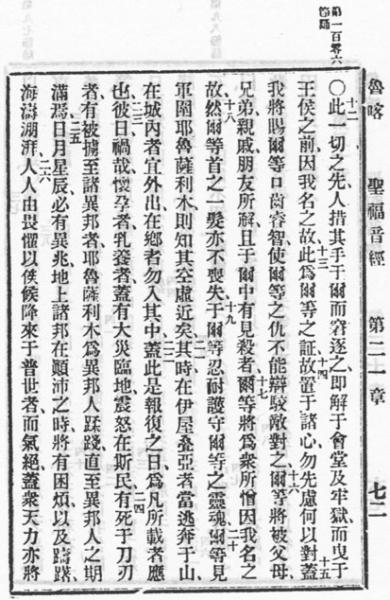 第一百零六
節端
魯喀　聖福音經　第二一章　七二
〇此一切之先人措其手于爾而窘逐之即解于會堂及牢獄而曳于
王侯之前因我名之故此爲爾等之証故置于諸心勿先慮何以對蓋
我將賜爾等口啇睿智使爾等之仇不能辯駁敵對之爾等將被父母
兄弟親戚朋友所解且于爾中有見殺者爾等將爲衆所憎因我名之
故然爾等首之一髮亦不喪失于爾等忍耐護守爾等之靈魂爾等見
軍圍耶魯薩利木則知其空虛近矣其時在伊屋疊亞者當逃奔于山
在城內者宜外出在鄉者勿入其中蓋此是報復之日爲凡所載者應
也彼日禍哉懷孕者乳養者蓋有大災臨地震怒在斯民有死于刀刃
者有被擄至諸異邦者耶魯薩利木爲異邦人蹂踐直至異邦人之期
滿焉日月星辰必有異兆地上諸邦在顚沛之時將有困煩以及躊躇
海濤淜湃人人由畏懼以俟候降來于普世者而氣絕蓋衆天力亦將
十二
十三
十四
十五
十六
十七
十八
十九
二十
二一
二二
二三
二四
二五
二六